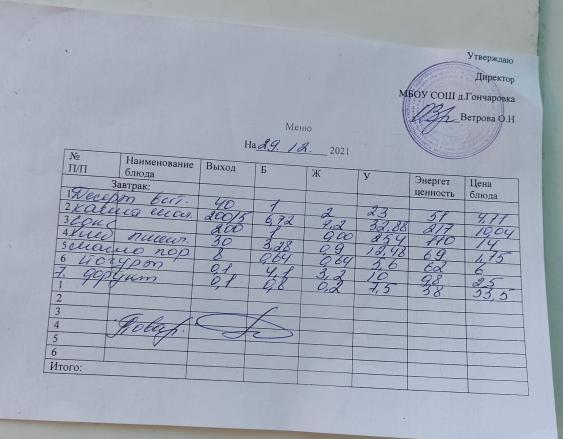 Утверждаю
Директор
МБОУ СОШ д.Гончаровка
Ветрова О.Н
Меню
На 29.12. 2021
№ П/П Наименование блюда Выход Б Ж У Энергет ценность Цена блюда
Завтрак:
1 Десерт вит. 40 1 2 23 51 4,77
2 каша мол. 200/5 6,72 7,2 32,88 217 10,04
3 сок 200 1 0,00 25,4 110 14
4. хлеб пшен. 30 3,28 0,9 12,48 69 1,75
5 масло пор 8 0,64 0,64 62 6
6 йогурт 0,1 4,1 3,2 10 25
7. фрукт 0,1 0,8 0,2 7,5 38 33,5
1
2
3
4 Повар.
5
6
Итого: